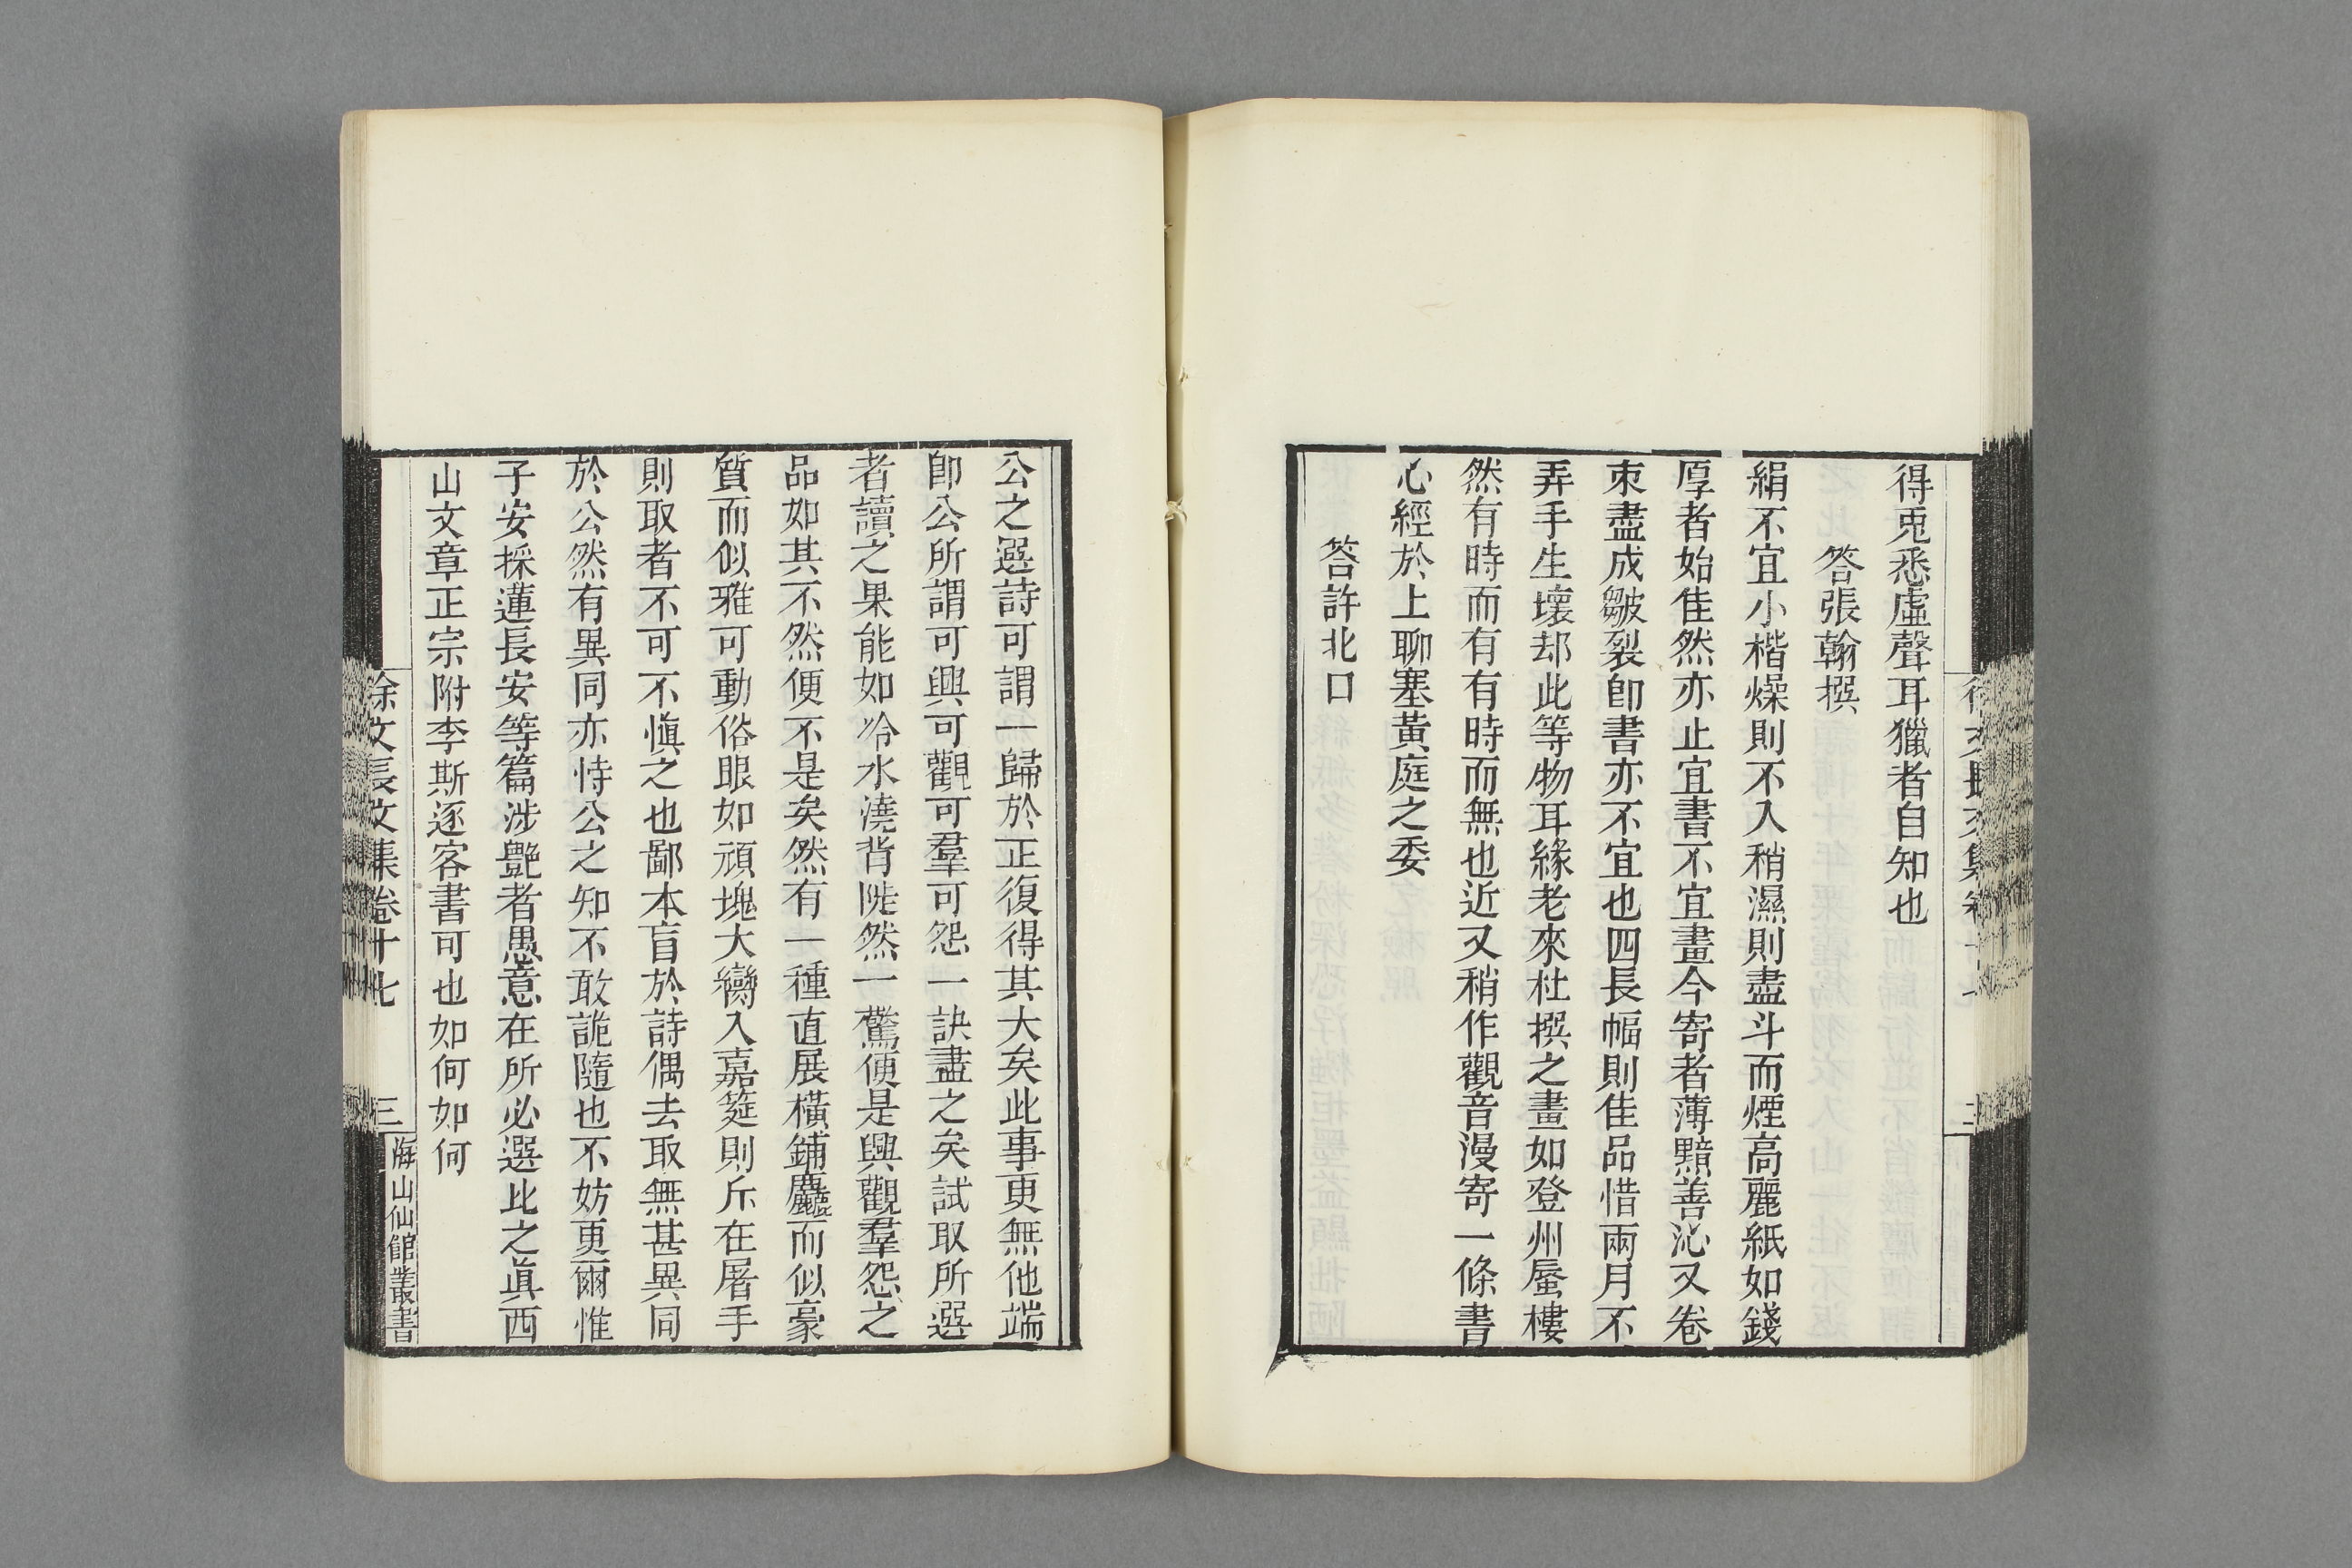 得兎悉虛聲耳獵者自知也
答張翰撰
絹不宜小楷燥則不入稍濕則盡斗而煙高麗紙如錢
厚者始佳然亦止宜書不宜畫今寄者薄黯善沁又卷
束盡成皺裂卽書亦不宜也四長幅則佳品惜兩月不
弄手生壞却此等物耳緣老來杜撰之畫如登州蜃樓
然有時而有有時而無也近又稍作觀音漫寄一條書
心經於上聊塞黃庭之委
答許北口
公之選詩可謂一歸於正復得其大矣此事更無他端
卽公所謂可興可觀可羣可怨一訣盡之矣試取所選
者讀之果能如冷水澆背陡然一驚便是興觀羣怨之
品如其不然便不是矣然有一種直展橫鋪麤而似豪
質而似雅可動俗眼如頑塊大臠入嘉筵則斥在屠手
則取者不可不愼之也鄙本盲於詩偶去取無甚異同
於公然有異同亦恃公之知不敢詭隨也不妨更爾惟
子安採蓮長安等篇涉艶者愚意在所必選比之眞西
山文章正宗附李斯逐客書可也如何如何
徐文長文集卷十七
三
海山仙館叢書